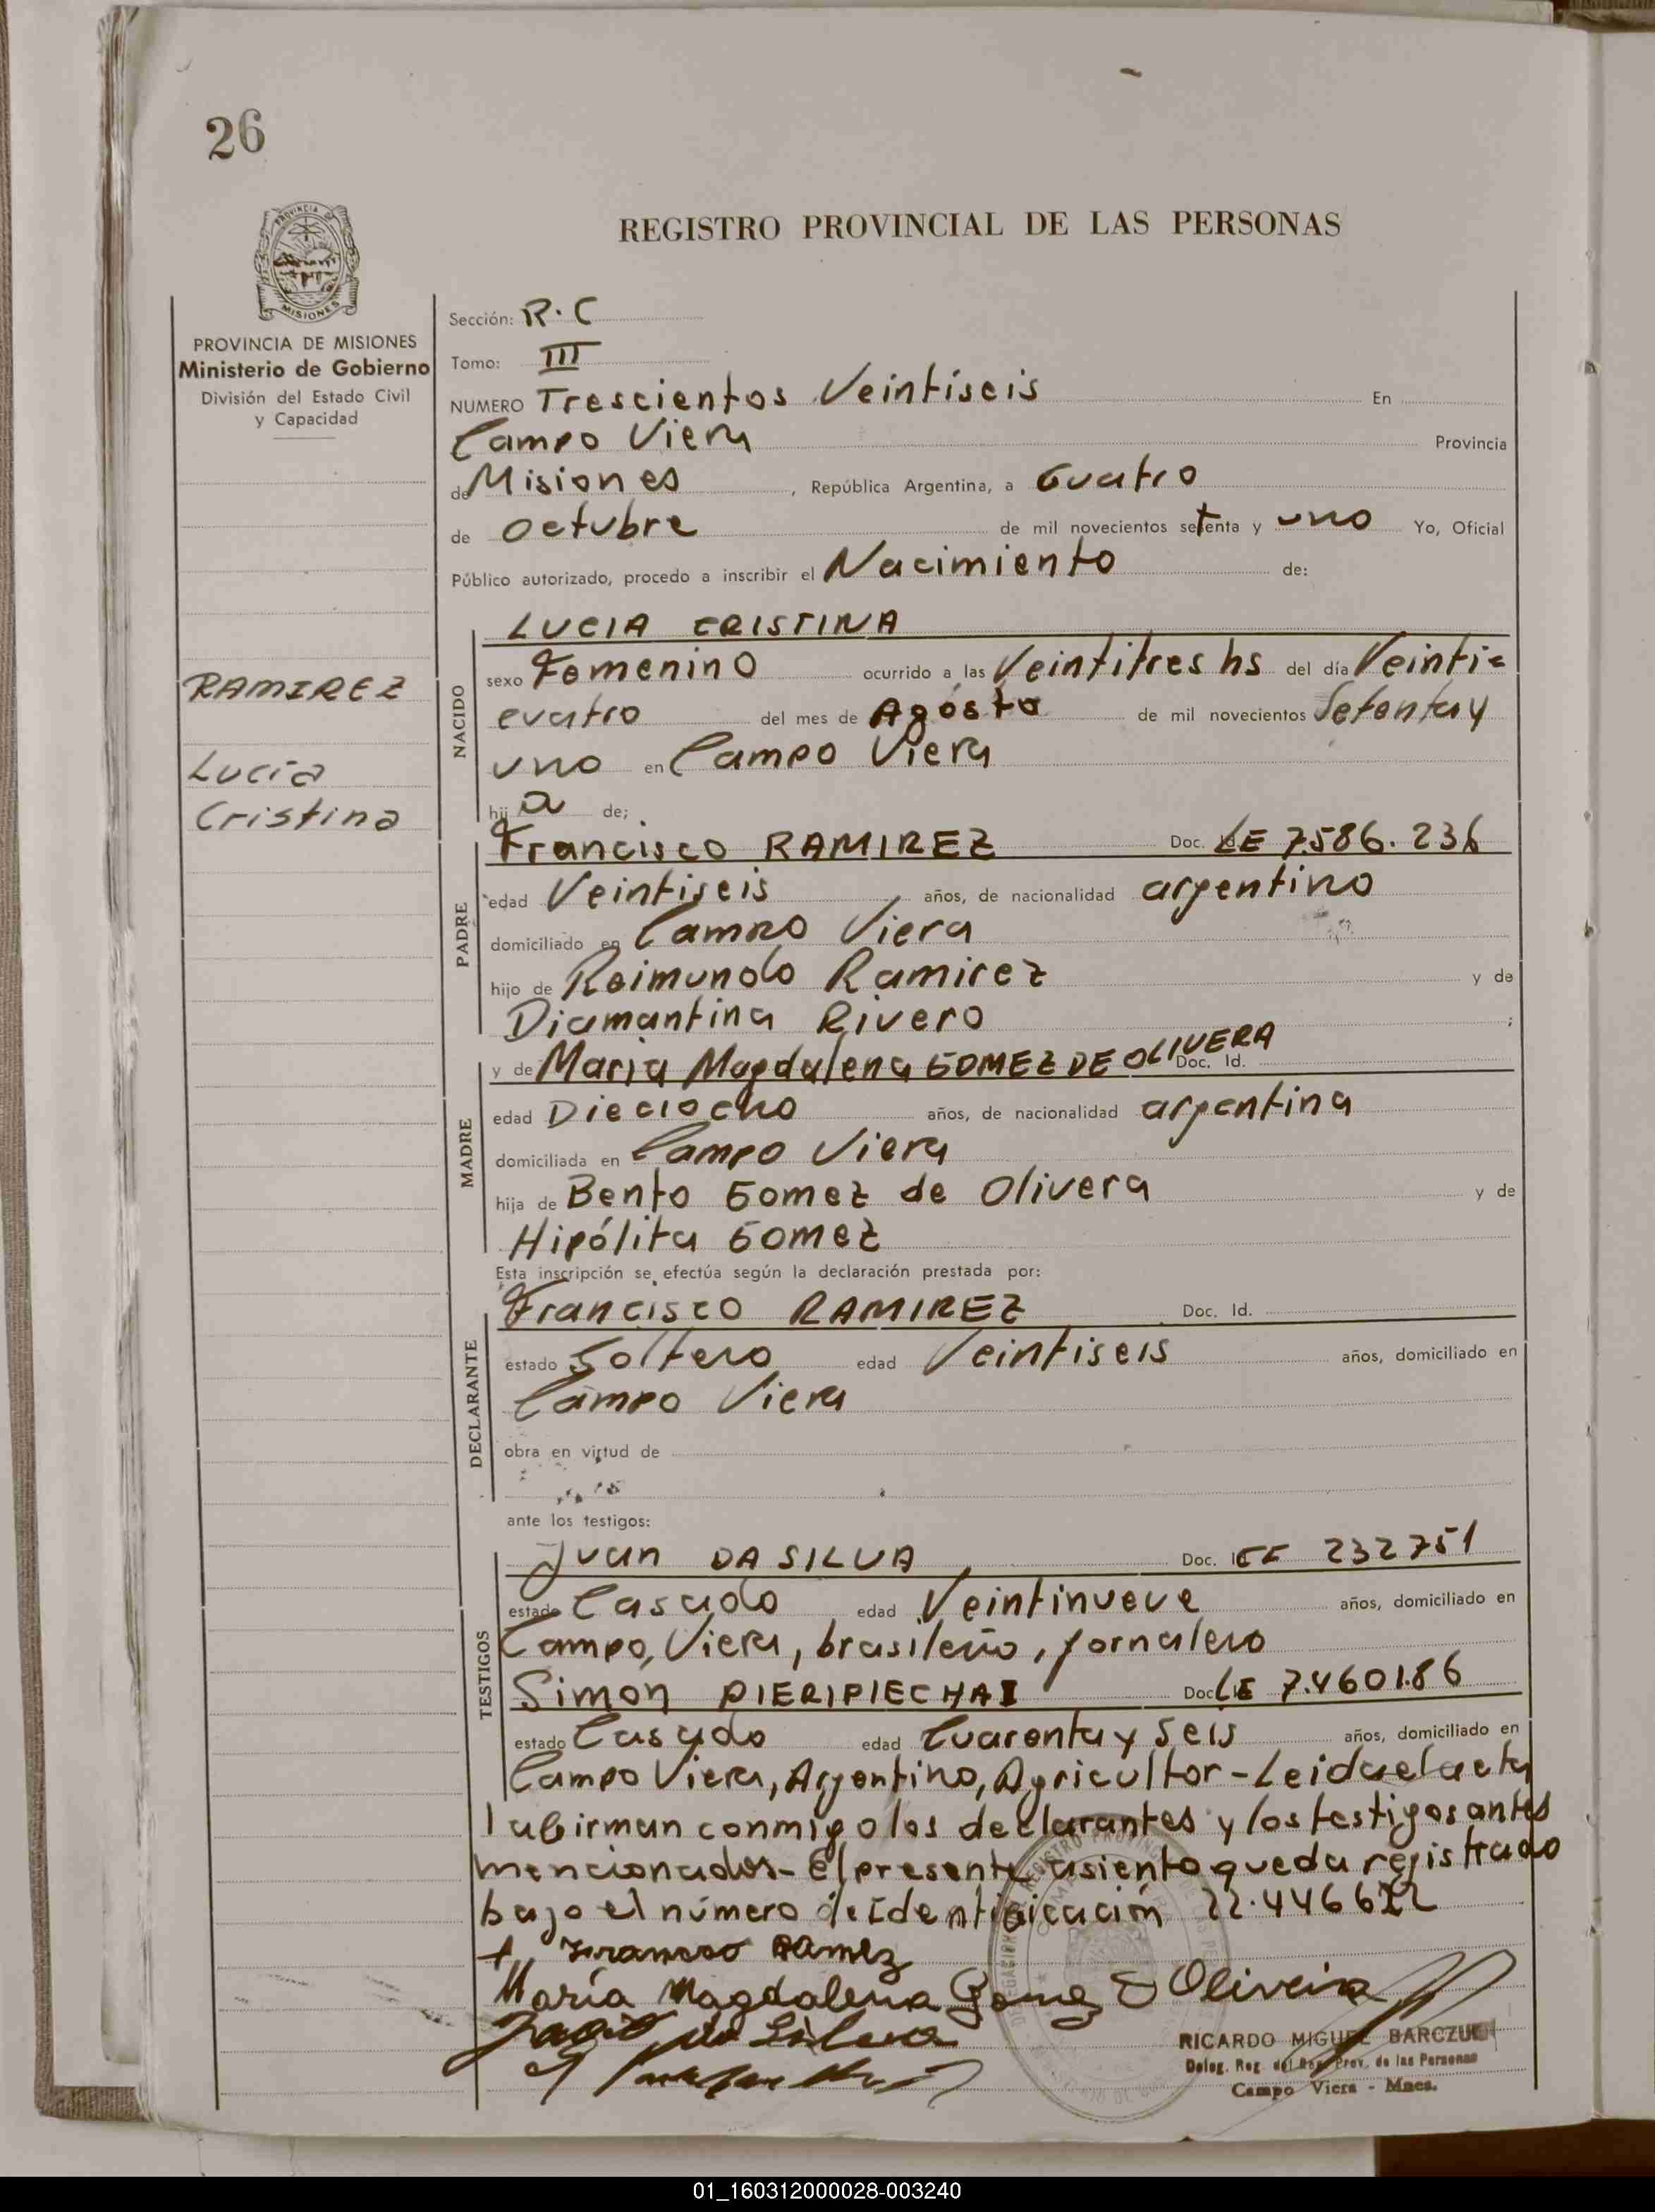 26
REGISTRO PROVINCIAL DE LAS PERSONAS
PROVINCIA DE MISIONES
Ministerio de Gobierno
División del Estado Civil
y Capacidad
RAMIREZ
Lucía
Cristina
Sección: R.C
Tomo: III
NUMERO Trescientos Veintiseis En
Campo Viera Provincia
de Misiones, República Argentina, a Cuatro
de octubre de mil novecientos setenta y uno Yo, Oficial
Público autorizado, procedo a inscribir el Nacimiento de:
NACIDO
LUCIA CRISTINA
sexo Femenino ocurrido a las Veintitres hs del día Veinti=
cuatro del mes de Agosto de mil novecientos Setenta y
uno en Campo Viera
hija de;
PADRE
Francisco RAMIREZ Doc. LE 7.586.236
edad Veintiseis años, de nacionalidad argentino
domiciliado en Campo Viera
hijo de Raimundo Ramirez y de
Diamantina Rivero ;
MADRE
y de Maria Magdalena GOMEZ DE OLIVERA Doc. Id.
edad Dieciocho años, de nacionalidad argentina
domiciliada en Campo Viera
hija de Bento Gomez de Olivera y de
Hipólita Gomez
Esta inscripción se efectúa según la declaración prestada por:
DECLARANTE
Francisco RAMIREZ Doc. Id.
estado Soltero edad Veintiseis años, domiciliado en
Campo Viera
obra en virtud de
ante los testigos:
TESTIGOS
Juan DA SILVA Doc. 232751
estado Casado edad Veintinueve años, domiciliado en
Campo Viera, brasileño, jornalero
Simón PIERIPIECHAI Doc LE 7.460186
estado Casado edad Cuarenta y Seis años, domiciliado en
Campo Viera, Argentino, Agricultor - Leida el acta
la firman conmigo los declarantes y los testigos antes
mencionados - El presente asiento queda registrado
bajo el número de Identificación 22.446622
Francisco Ramirez
María Magdalena Gomez D Oliveira
RICARDO MIGUEL BARCZUK
Deleg. Reg. del Reg. Prov. de las Personas
Campo Viera - Mnes.
01_160312000028-003240